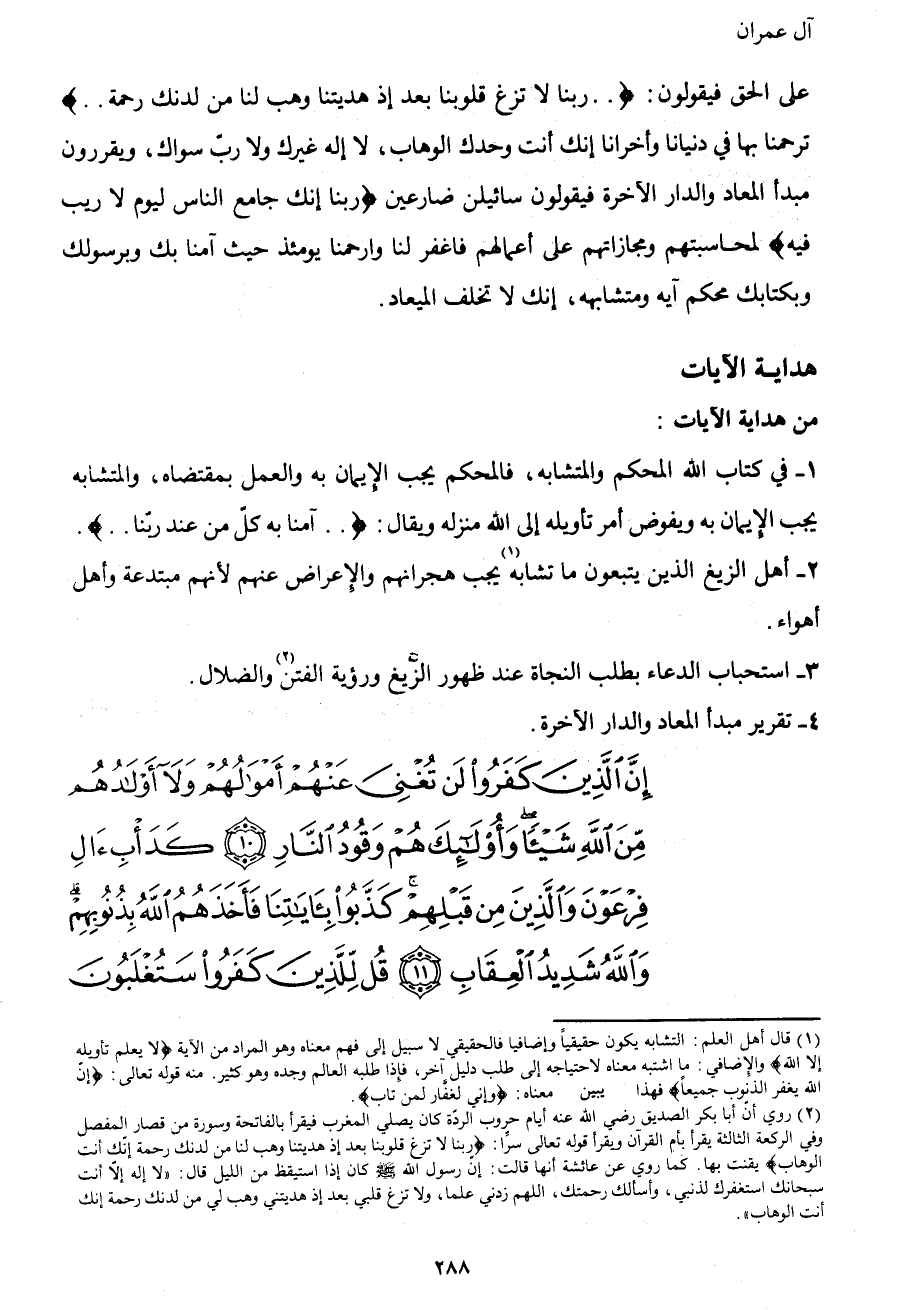 آل عمران
على الحق فيقولون: ﴿. . ربنا لا تزغ قلوبنا بعد إذ هديتنا وهب لنا من لدنك رحمة . .﴾
ترحمنا بها في دنيانا وأخرانا إنك أنت وحدك الوهاب، لا إله غيرك ولا ربّ سواك، ويقررون
مبدأ المعاد والدار الآخرة فيقولون سائيلن ضارعين ﴿ربنا إنك جامع الناس ليوم لا ريب
فيه﴾ لمحاسبتهم ومجازاتهم على أعمالهم فاغفر لنا وارحمنا يومئذ حيث آمنا بك وبرسولك
وبكتابك محكم آيه ومتشابهه، إنك لا تخلف الميعاد.
هداية الآيات
من هداية الآيات :
١ـ في كتاب الله المحكم والمتشابه، فالمحكم يجب الإيمان به والعمل بمقتضاه، والمتشابه
يجب الإيمان به ويفوض أمر تأويله إلى الله منزله ويقال: ﴿. . آمنا به كلّ من عند ربّنا . .﴾.
٢ـ أهل الزيغ الذين يتبعون ما تشابه(١) يجب هجرانهم والإعراض عنهم لأنهم مبتدعة وأهل
أهواء.
٣ـ استحباب الدعاء بطلب النجاة عند ظهور الزَّيغ ورؤية الفتن(٢) والضلال.
٤ـ تقرير مبدأ المعاد والدار الآخرة.
إِنَّ ٱلَّذِينَ كَفَرُوا۟ لَن تُغْنِىَ عَنْهُمْ أَمْوَٰلُهُمْ وَلَآ أَوْلَـٰدُهُم
مِّنَ ٱللَّهِ شَيْـًٔا ۖ وَأُو۟لَـٰٓئِكَ هُمْ وَقُودُ ٱلنَّارِ ١٠ كَدَأْبِ ءَالِ
فِرْعَوْنَ وَٱلَّذِينَ مِن قَبْلِهِمْ ۚ كَذَّبُوا۟ بِـَٔايَـٰتِنَا فَأَخَذَهُمُ ٱللَّهُ بِذُنُوبِهِمْ ۗ
وَٱللَّهُ شَدِيدُ ٱلْعِقَابِ ١١ قُل لِّلَّذِينَ كَفَرُوا۟ سَتُغْلَبُونَ
(١) قال أهل العلم: التشابه يكون حقيقياً وإضافيا فالحقيقي لا سبيل إلى فهم معناه وهو المراد من الآية ﴿لا يعلم تأويله
إلا الله﴾ والإضافي: ما اشتبه معناه لاحتياجه إلى طلب دليل آخر، فإذا طلبه العالم وجده وهو كثير. منه قوله تعالى: ﴿إنّ
الله يغفر الذنوب جميعاً﴾ فهذا يبين معناه: ﴿وإني لغفّار لمن تاب﴾.
(٢) روي أنّ أبا بكر الصديق رضي الله عنه أيام حروب الردّة كان يصلي المغرب فيقرأ بالفاتحة وسورة من قصار المفصل
وفي الركعة الثالثة يقرأ بأم القرآن ويقرأ قوله تعالى سرًّا: ﴿ربنا لا تزغ قلوبنا بعد إذ هديتنا وهب لنا من لدنك رحمة إنّك أنت
الوهاب﴾ يقنت بها. كما روي عن عائشة أنها قالت: إنّ رسول الله ﷺ كان إذا استيقظ من الليل قال: «لا إله إلاّ أنت
سبحانك استغفرك لذنبي، وأسألك رحمتك، اللهم زدني علما، ولا تزغ قلبي بعد إذ هديتني وهب لي من لدنك رحمة إنك
أنت الوهاب».
٢٨٨